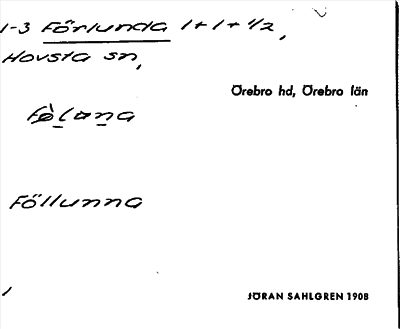 1-3 Förlunda 1+1+1/2,
Hovsta sn,
Örebro hd, Örebro län
Föllunna
JÖRAN SAHLGREN 1908